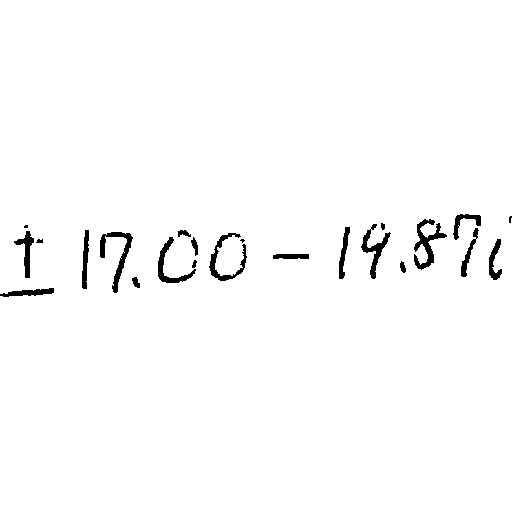 ± 17.00 - 19.87i